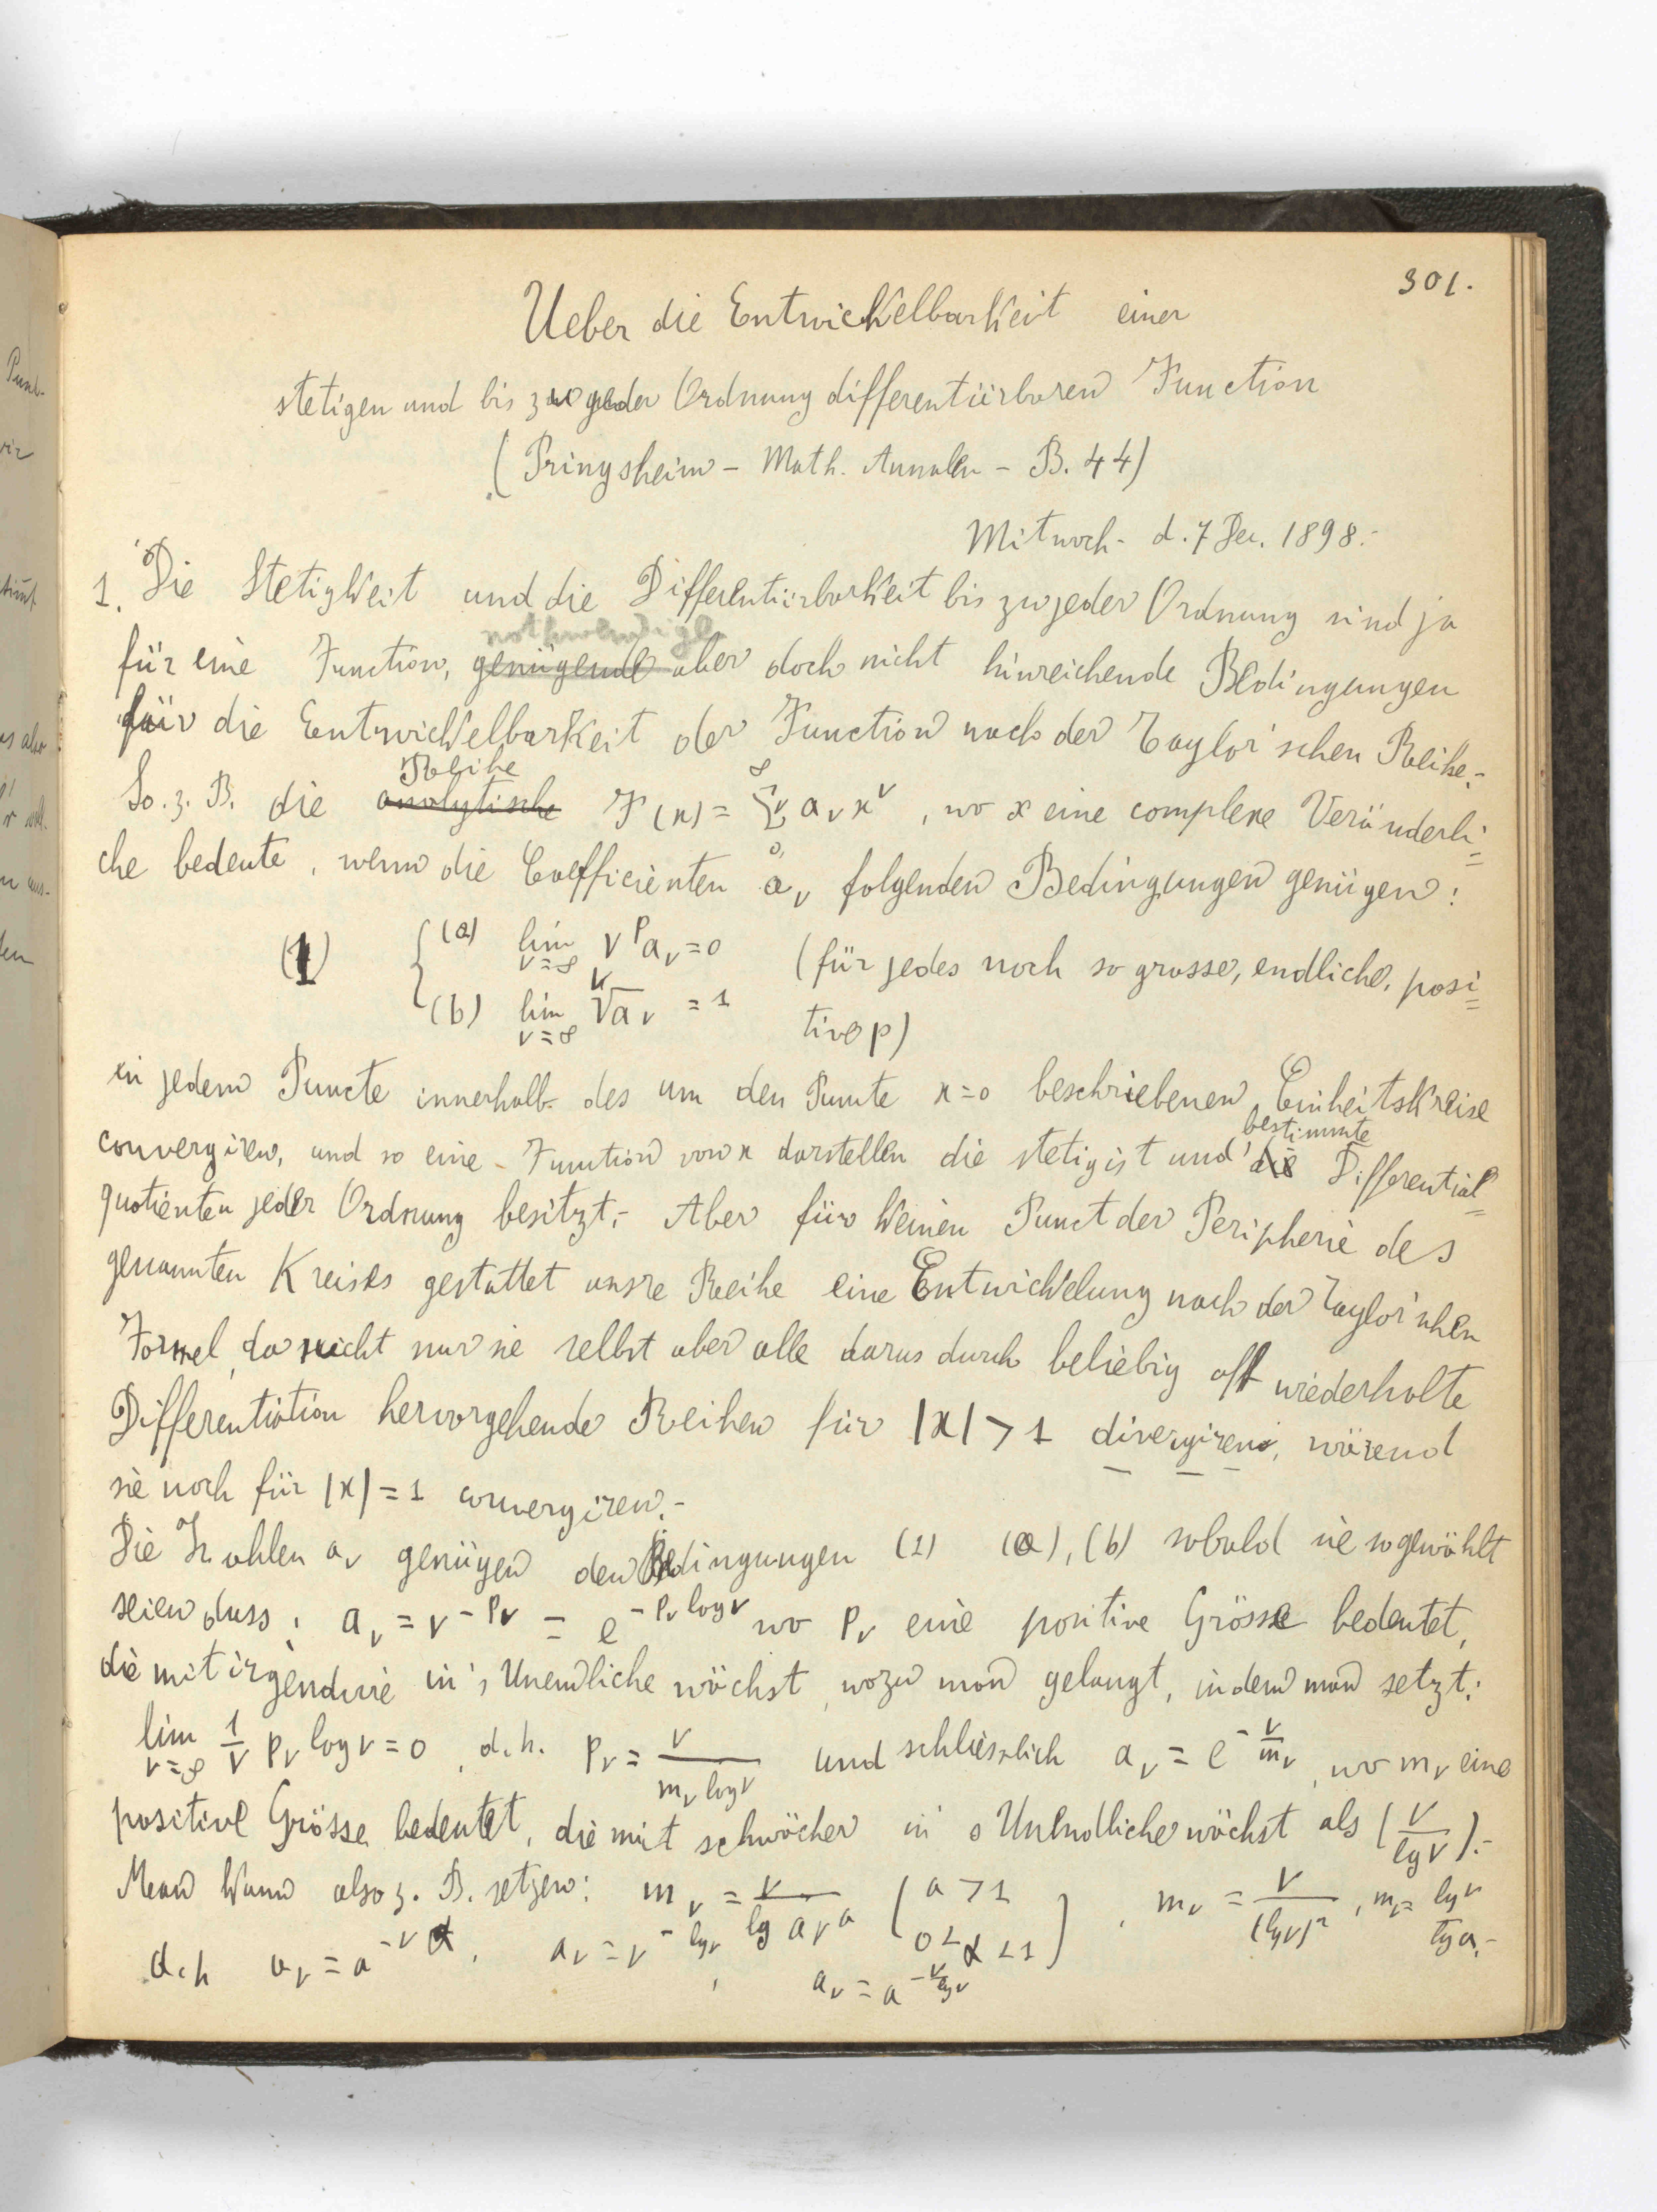 301.
Ueber die Entwickelbarkeit einer
stetigen und bis zu jeder Ordnung differentiirbaren Function
(Pringsheim - Math. Annalen - B. 44)
Mitwoch - d. 7 Dec. 1898.-
1. Die Stetigkeit und die Differentiirbarkeit bis zu jeder Ordnung sind ja
nothwendige
für eine Function, genügende aber doch nicht hinreichende Bedingungen
für die Entwickelbarkeit der Function nach der Taylor'schen Reihe.-
Reihe
So. z. B. die analytische F(x) = ∞Σν0 aν x^ν , wo x eine complexe Veränderli=
che bedeute, wenn die Coefficienten aν folgenden Bedingungen genügen:
(1) { (a) lim ν=∞ ν^p aν = 0 (für jedes noch so grosse, endliche, posi=
(b) lim ν=∞ ν√aν = 1 tive p)
in jedem Puncte innerhalb des um den Puncte x=0 beschriebenen Einheitskreise
bestimmte
convergiren, und so eine Function von x darstellen die stetig ist und die Differential=
quotienten jeder Ordnung besitzt.- Aber für keinen Punct der Peripherie des
genannten Kreises gestattet unsre Reihe eine Entwickelung nach der Taylor'schen
Formel, da nicht nur sie selbst aber alle darus durch beliebig oft wiederholte
Differentiation hervorgehende Reihen für |x| > 1 divergiren, wärend
sie noch für |x| = 1 convergiren.-
Die Zahlen aν genügen den Bedingungen (1) (a), (b) sobald sie so gewählt
seien dass: aν = ν^-pν = e^-pν log ν wo pν eine positive Grösse bedeutet,
die mit irgendwie in's Unendliche wächst, wozu man gelangt, indem man setzt:
lim ν=∞ 1/ν pν log ν = 0, d.h. pν = ν/(mν log ν) und schliesslich aν = e^-ν/mν, wo mν eine
positive Grösse bedeutet, die mit schwächer in's Unendliche wächst als (ν/lg ν).-
Man kann also z. B. setzen: mν = ν/(lg a ν^α) (a > 1 0 < α < 1), mν = ν/(lg ν)², mν = lg ν/lg a.-
d.h aν = a^-ν^α, aν = ν^-lg ν, aν = a^-ν/lg ν